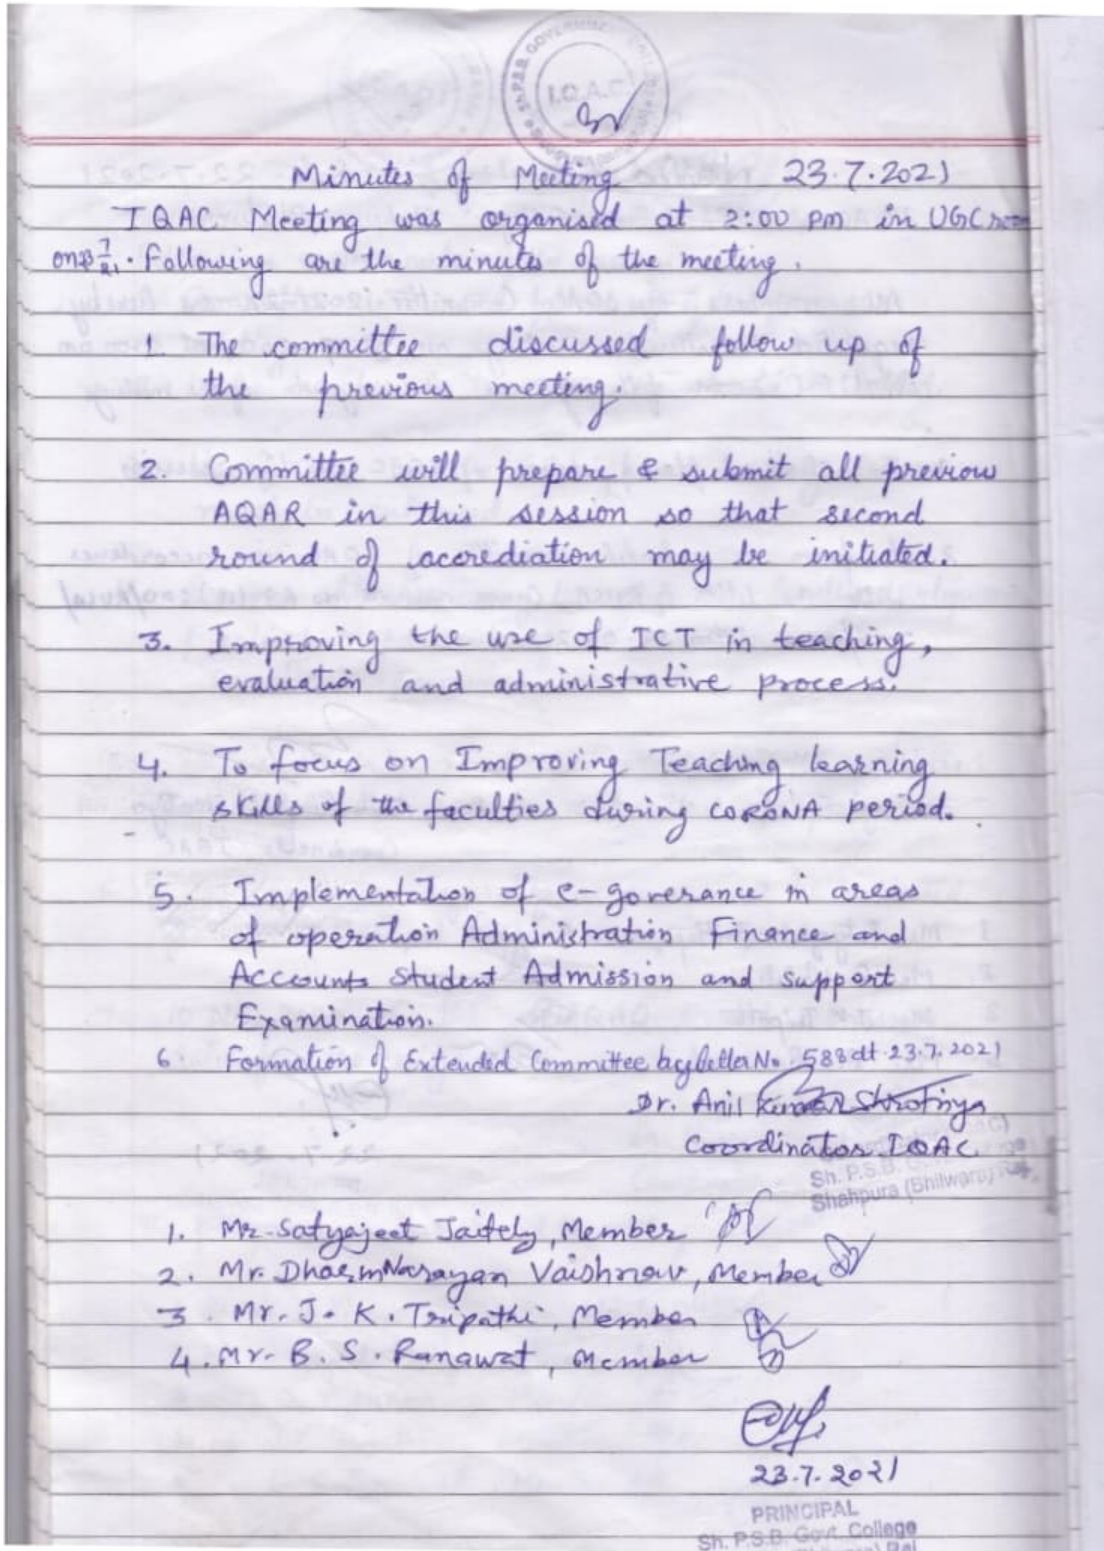 Sh. P.S.B. GOVERNME
I.Q.A.C.
Minutes of Meeting 23.7.2021
IQAC Meeting was organised at 2:00 pm in UGC room
on 23/7/21. Following are the minutes of the meeting.
1. The committee discussed follow up of
the previous meeting.
2. Committee will prepare & submit all previow
AQAR in this session so that second
round of accrediation may be initiated.
3. Improving the use of ICT in teaching,
evaluation and administrative process.
4. To focus on Improving Teaching learning
skills of the faculties during CORONA period.
5. Implementation of e-goverance in areas
of operation Administration Finance and
Accounts Student Admission and support
Examination.
6. Formation of Extended Committee by letter No. 588 dt. 23.7.2021
Dr. Anil Kumar Shrotriya
Coordinator IQAC
Sh. P.S.B.
Shahpura (Bhilwara) Raj.
1. Mr. Satyajeet Jaitely, Member
2. Mr. Dharm Narayan Vaishnav, Member
3. Mr. J. K. Tripathi, Member
4. Mr. B. S. Ranawat, Member
23.7.2021
PRINCIPAL
Sh. P.S.B. Govt. College